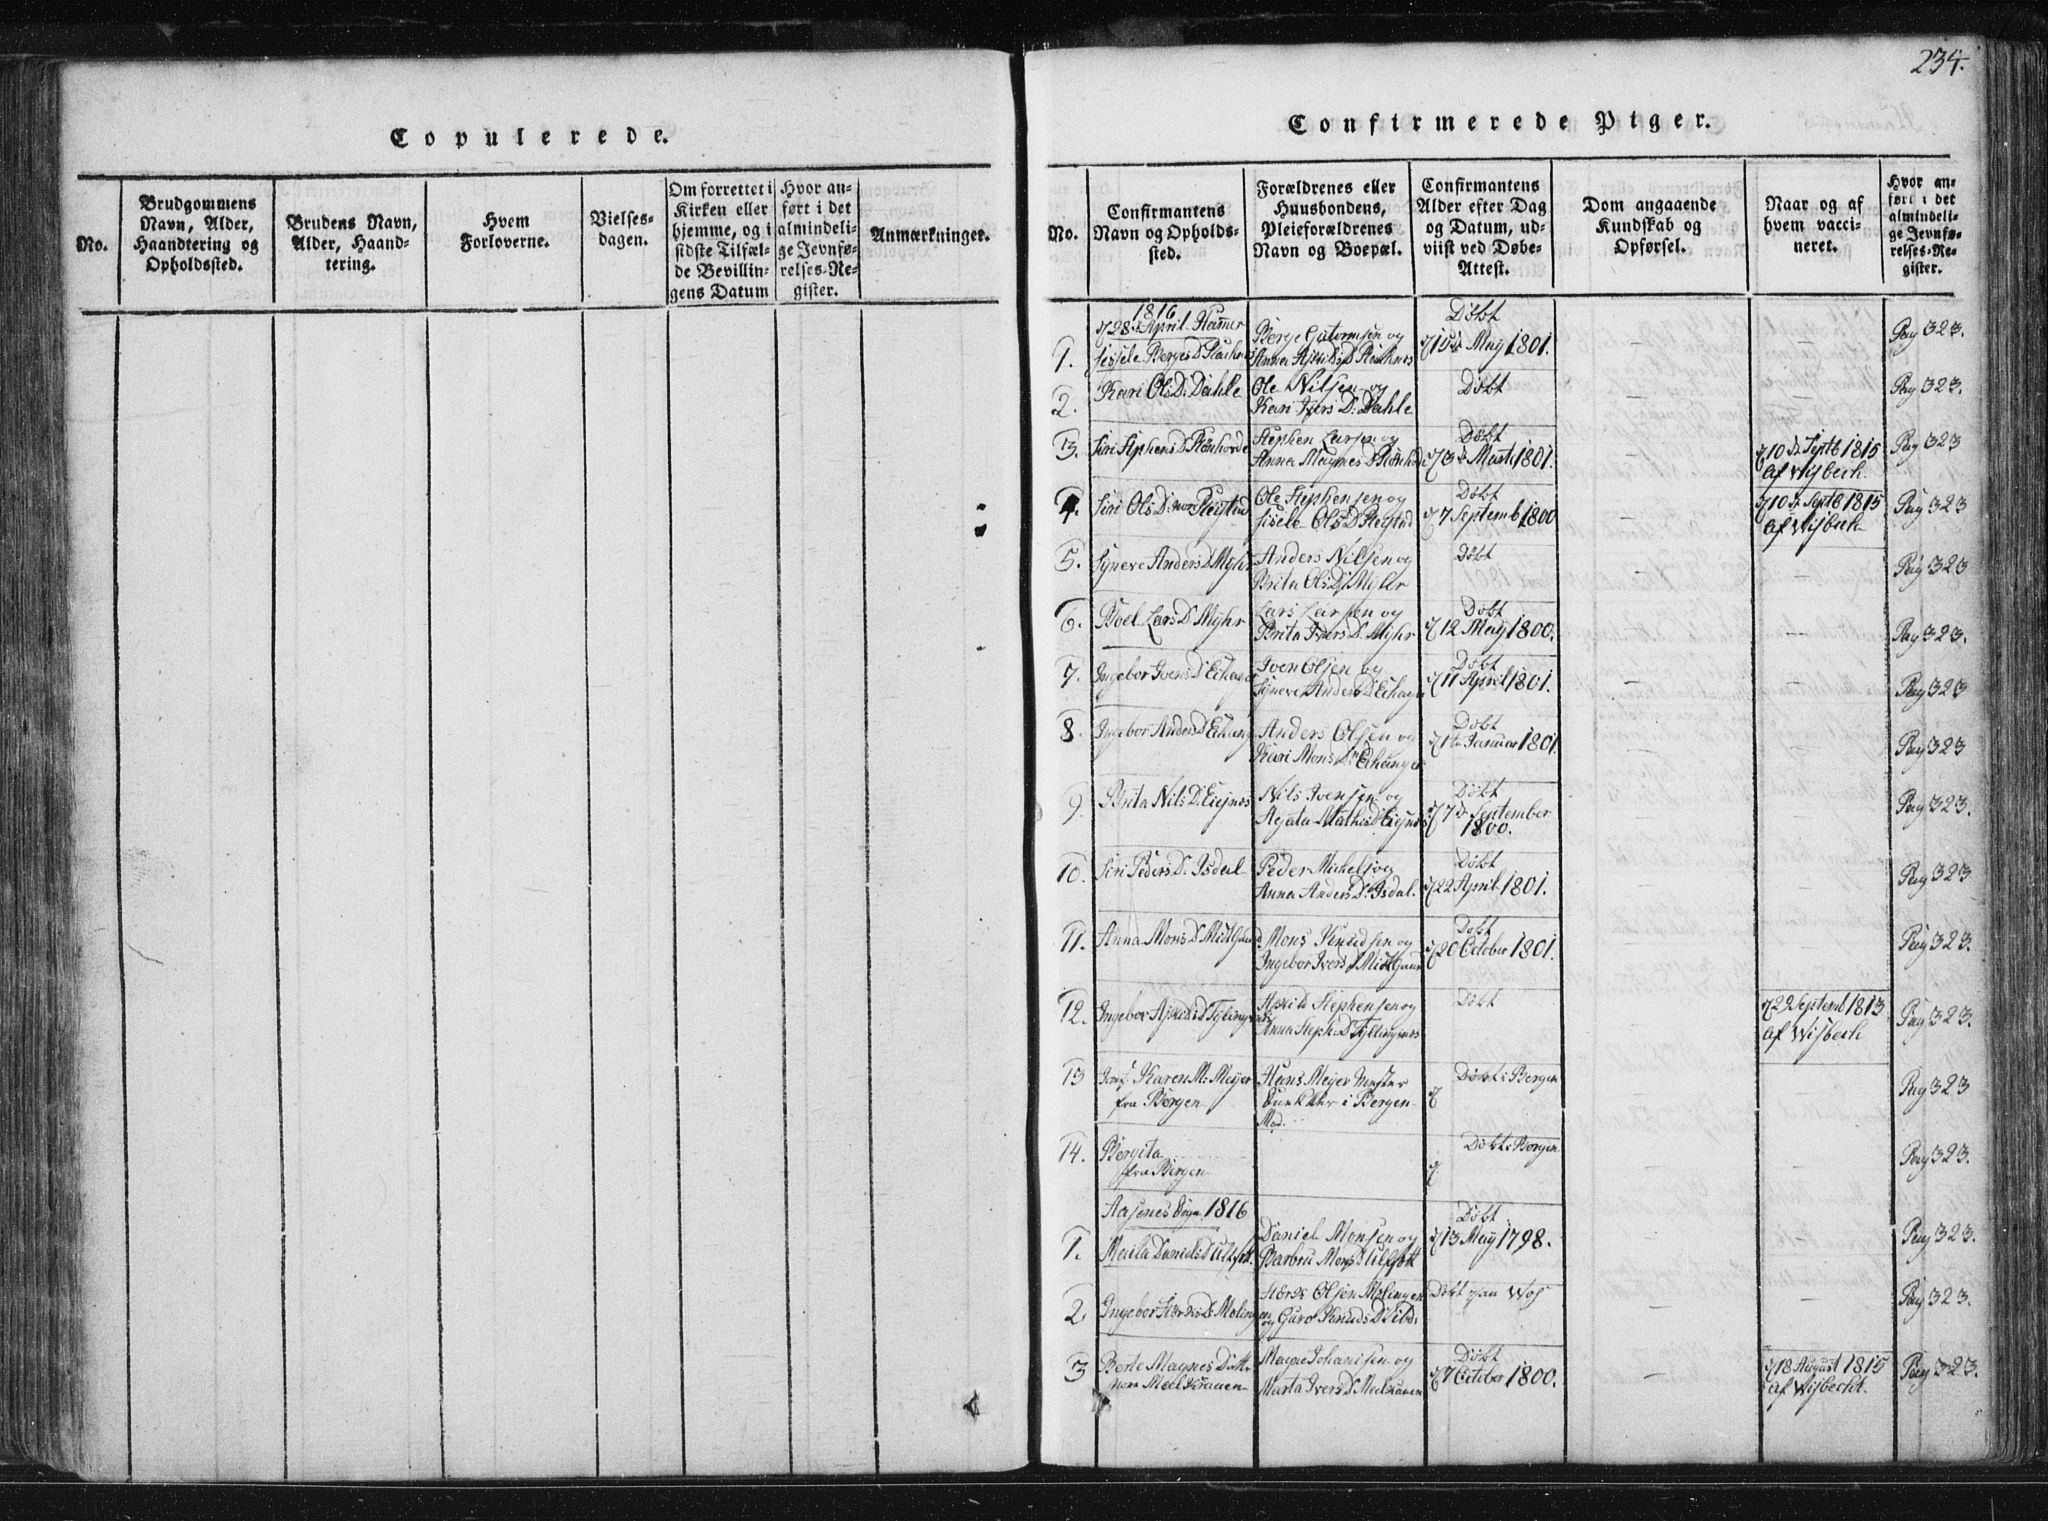 234.
Copulerede.
No.
Brudgommens Navn, Alder, Haandtering og Opholdssted.
Brudens Navn, Alder, Haandtering.
Hvem Forloverne.
Vielsesdagen.
Om forrettet i Kirken eller hjemme, og i sidste Tilfælde Bevillingens Datum
Hvor anført i det almindelige Jevnførelses-Register.
Anmærkninger.
Confirmerede Piger.
No.
Confirmantens Navn og Opholdssted.
Forældrenes eller Huusbondens, Pleieforældrenes Navn og Boepæl.
Confirmantens Alder efter Dag og Datum, udviist ved Døbe-Attest.
Dom angaaende Kundskab og Opførsel.
Naar og af hvem vaccineret.
Hvor anført i det almindelige Jevnførelses-Register.
1816
28 April Hammer
1. Sissele Børges D. Børge Gutormsen og Anna Døbt 10 May 1801. Pag 323.
2. Kari Ols D. Dahle Ole Nilsen og Kari Ivers D. Dahle Døbt Pag 323.
3. Siri Stephens D. Stephen Larsen og Anna Magnes D. Døbt 3 Marti 1801. 10 Septb 1815 af Wisbech. Pag 323
4. Siri Ols D. Ole Stephensen og Sisele Ols D. Døbt 7 Septemb 1800 10 Septb 1815 af Wisbech Pag 323
5. Syneve Anders D. Myhr Anders Nilsen og Brita Ols D. Myhr Døbt Pag 323
6. Boel Lars D. Myhr Lars Larsen og Brita Ivers D. Myhr Døbt 12 May 1800. Pag 323.
7. Ingebor Ivers D. Eihanger Iver Olsen og Synneve Anders D. Eihanger Døbt 11 April 1801. Pag 323
8. Ingebor Anders D. Eihanger Anders Olsen og Kari Mons D. Eihanger Døbt 1 Januar 1801. Pag 323
9. Brita Nils D. Eisnes Nils Iversen og Agata Mathis D. Eisnes Døbt 7 September 1800. Pag 323.
10. Siri Peders D. Isdal Peder Michels og Anna Anders D. Isdal. Døbt 22 April 1801. Pag 323
11. Anna Mons D. Midtgaard Mons Knudsen og Ingebor Ivers D. Midtgaard Døbt 20 October 1801. Pag 323.
12. Ingebor Askilds D. Askild Stephensen og Anna Steph. D. Døbt 22 Septemb 1813 af Wisbech Pag 323.
13 Karen M. Meyer fra Bergen Hans Meyer i Bergen Døbt i Bergen Pag 323
14. Bergita fra Bergen Døbt i Bergen Pag 323.
Aasenes Sogn 1816
1. Daniels D. Daniel Monsen og Barbru Mons D. Døbt 13 May 1798. Pag 323.
2. Ingebor D. Molingen Olsen Molingen og Guro Knuds D. Døbt Pag 323.
3 Berte Magnes Datt. Magne Johannsen og Marta Ivers D. Døbt 7 October 1800. 18 August 1815 af Wisbech. Pag 323.